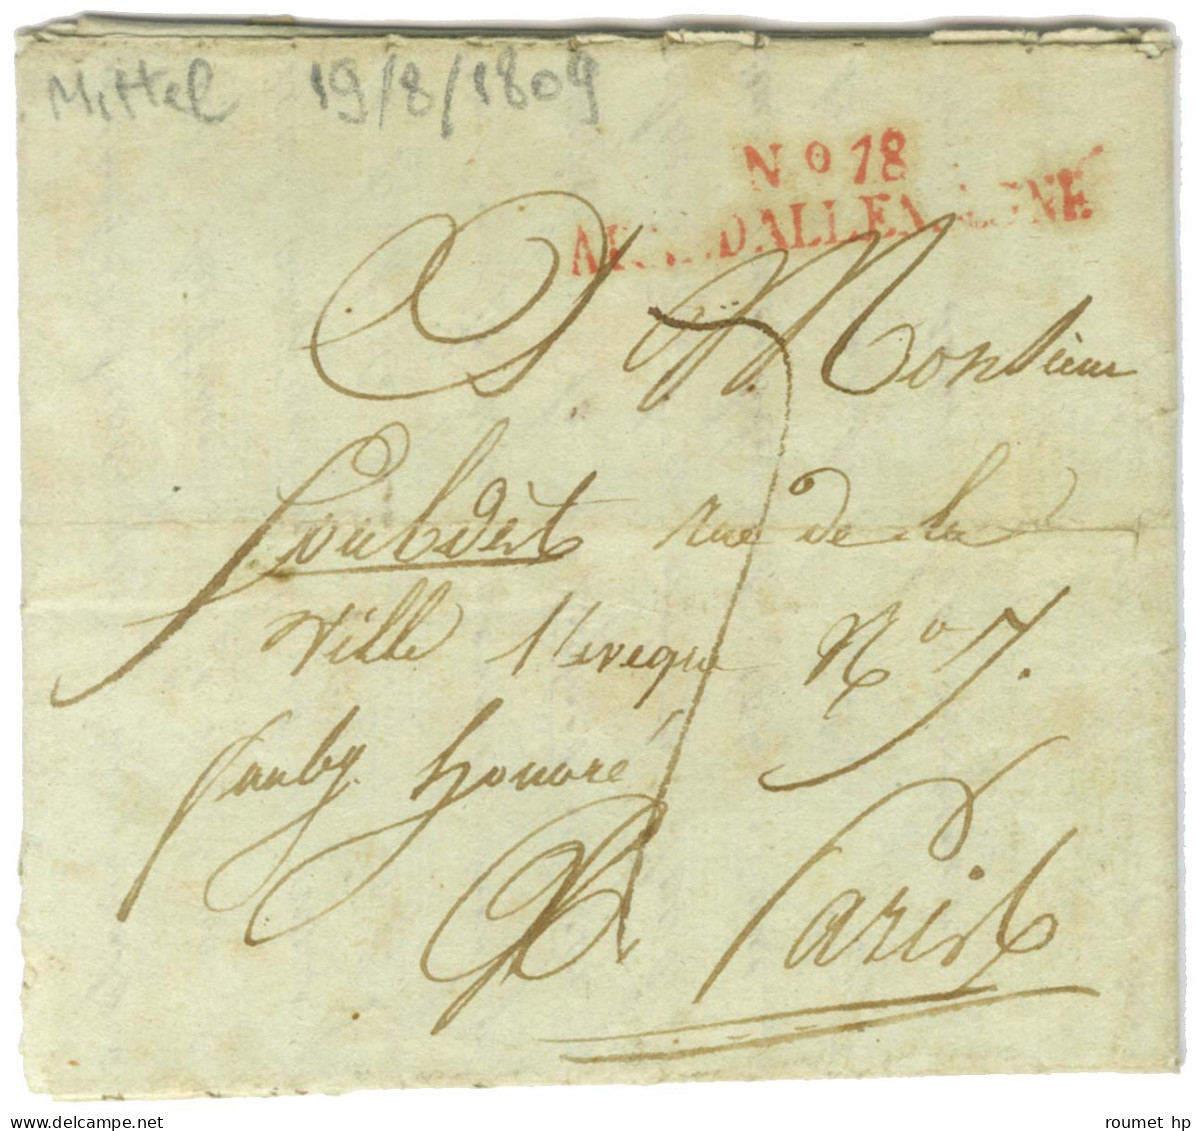 Mittel 19/8/1809
No 18
AR D'ALLEM GNE
A Monsieur
rue de la
Ville l'Eveque No 7.
faubg honoré
A Paris
www.delcampe.net
roumet hp